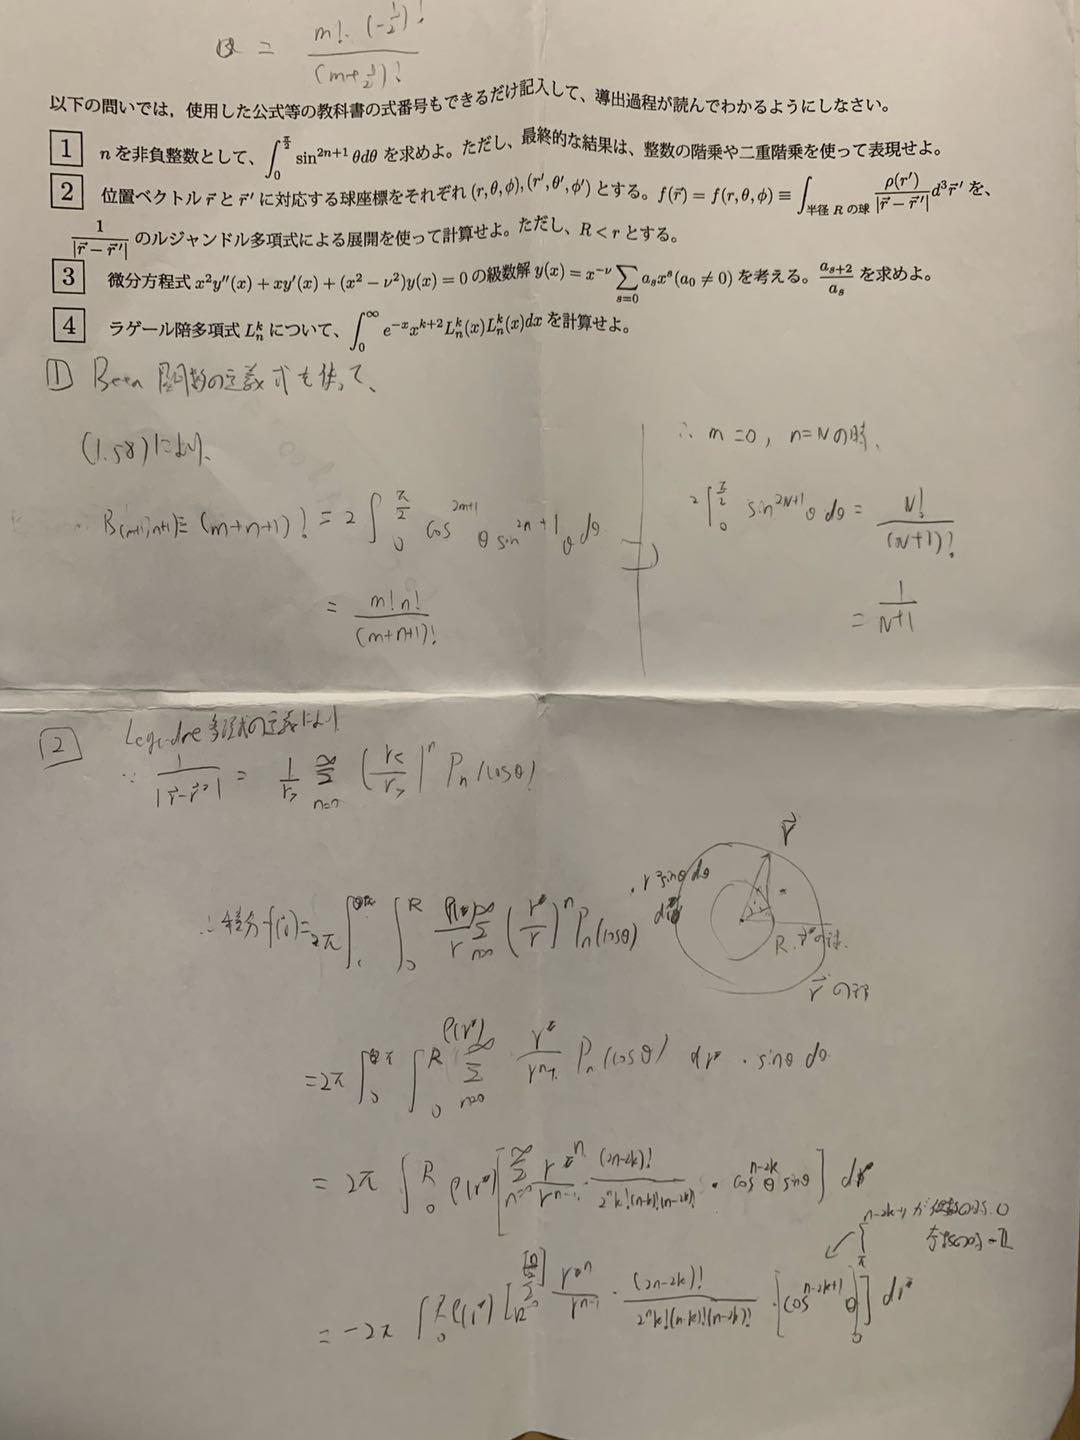 B = m!·(-1/2)! / (m+1/2)!
以下の問いでは，使用した公式等の教科書の式番号もできるだけ記入して、導出過程が読んでわかるようにしなさい。
1 n を非負整数として、∫_0^{π/2} sin^{2n+1} θdθ を求めよ。ただし、最終的な結果は、整数の階乗や二重階乗を使って表現せよ。
2 位置ベクトル r⃗ と r⃗′ に対応する球座標をそれぞれ (r, θ, ϕ), (r′, θ′, ϕ′) とする。f(r⃗) = f(r, θ, ϕ) ≡ ∫_{半径 R の球} ρ(r′)/|r⃗ − r⃗′| d³r⃗′ を、
1/|r⃗ − r⃗′| のルジャンドル多項式による展開を使って計算せよ。ただし、R < r とする。
3 微分方程式 x²y″(x) + xy′(x) + (x² − ν²)y(x) = 0 の級数解 y(x) = x^{−ν} ∑_{s=0} a_s x^s (a_0 ≠ 0) を考える。a_{s+2}/a_s を求めよ。
4 ラゲール陪多項式 L_n^k について、∫_0^∞ e^{−x} x^{k+2} L_n^k(x) L_n^k(x)dx を計算せよ。
① Beta 関数の定義式を使って、
(1.58)により、
B(m+1,n+1)≡ (m+n+1)! = 2∫_0^{π/2} cos^{2m+1}θ sin^{2n+1}θ dθ
= m!n! / (m+n+1)!
∴ m=0, n=N の時、
2∫_0^{π/2} sin^{2N+1}θ dθ = N! / (N+1)!
= 1/(N+1)
2 Legendre 多項式の定義により
∵ 1/|r⃗-r⃗'| = 1/r_> ∑_{n=0}^∞ (r_</r_>)^n P_n(cosθ)
r⃗
R
r⃗ の
∴積分 f(r) = 2π ∫ ∫_0^R 1/r ∑_{n=0}^∞ (r'/r)^n P_n(cosθ) · r sinθ dθ
= 2π ∫_0^π ∫_0^R ρ(r') ∑_{n=0}^∞ P_n(cosθ) dr' · sinθ dθ
= 2π ∫_0^R ρ(r') [∑_{n=0}^∞ r'^n/r^{n-1} · (2n-2k)!/2^n k!(n-k)!(n-2k)! · cos^{n-2k}θ sinθ] dr'
n-2k+1 が偶数の時、0
奇数の時 -2
= -2π ∫_0^R ρ(r') [∑^{[n/2]} r'^n/r^{n-1} · (2n-2k)!/2^n k!(n-k)!(n-2k)! · [cos^{n-2k+1}θ]_0^π] dr'